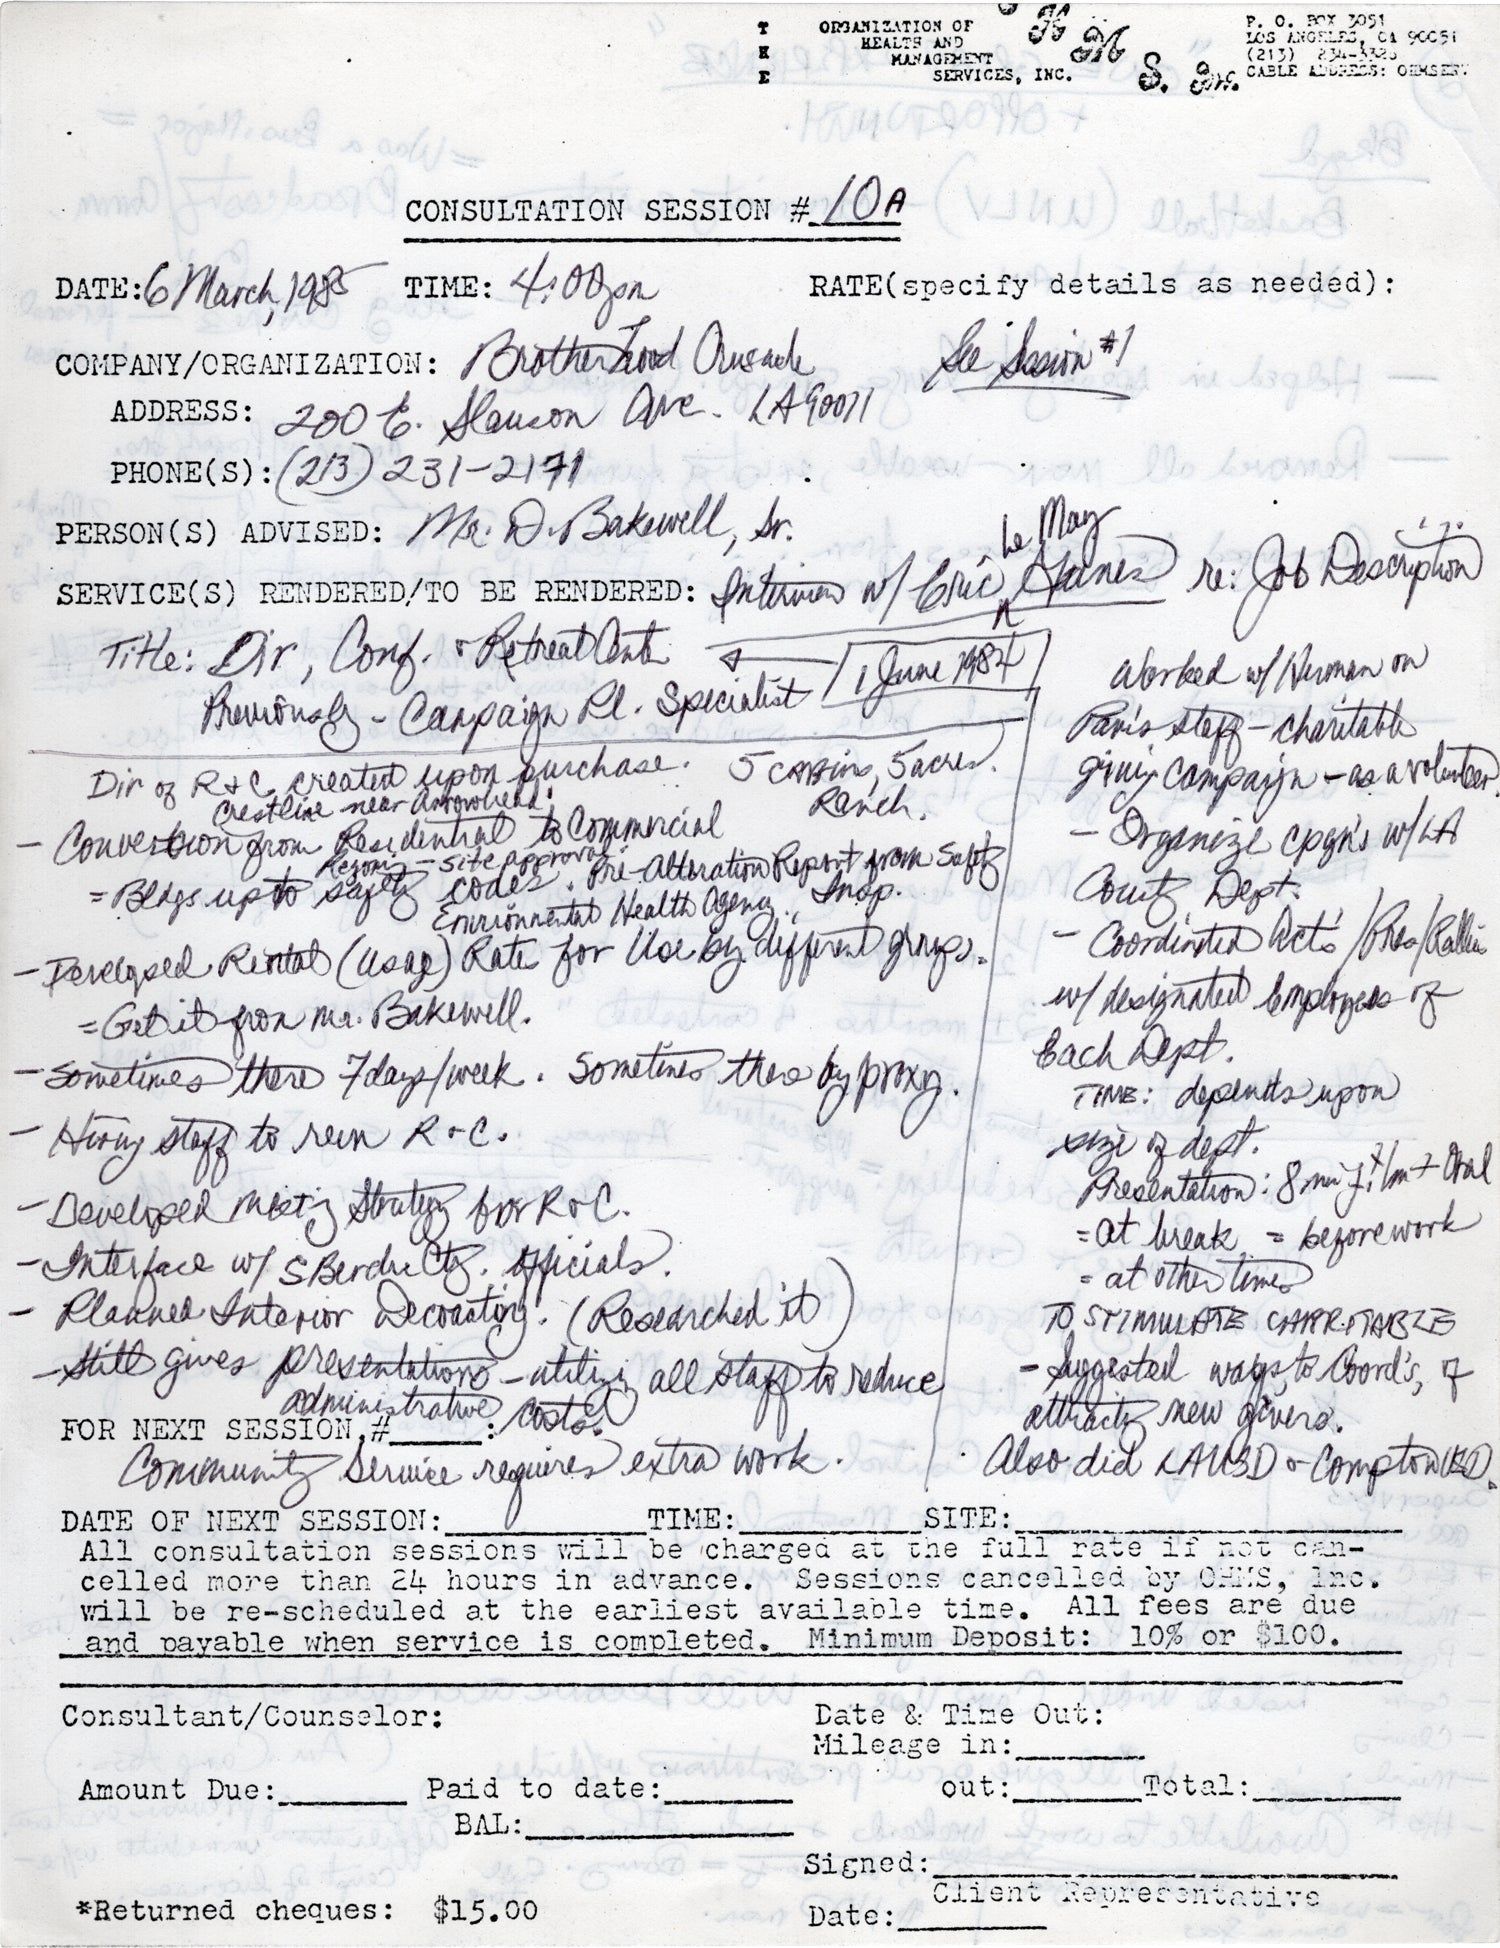 THE
ORGANIZATION OF
HEALTH AND
MANAGEMENT
SERVICES, INC.
P. O. BOX 3051
LOS ANGELES, CA 90051
(213) 234-3328
CABLE ADDRESS: OHMSERV
CONSULTATION SESSION # 10A
DATE: 6 March, 1985 TIME: 4:00pm RATE(specify details as needed):
COMPANY/ORGANIZATION: Brotherhood Crusade See Session #1
ADDRESS: 200 E. Slauson Ave. LA 90011
PHONE(S): (213) 231-2171
PERSON(S) ADVISED: Mr. D. Bakewell, Sr.
SERVICE(S) RENDERED/TO BE RENDERED: Interview w/ Eric Le May Haines re: Job Description
Title: Dir, Conf. & Retreat Centr 1 June 1984
Previously - Campaign Pl. Specialist
Dir of R&C created upon purchase. 5 CABINS, 5 acres.
Crestline near Arrowhead. Ranch.
- Conversion from Residential to Commercial
- site approval.
= Bldgs up to safety codes. Pre-Alteration Report from Safety
Environmental Health Agency. Insp.
- Developed Rental (usage) Rates for Use by different groups.
= Get it from Mr. Bakewell.
- Sometimes there 7 days/week. Sometimes there by proxy.
- Hiring staff to run R & C.
- Developed mktg Strategy for R & C.
- Interface w/ S Berdu Cty. Officials.
- Planned Interior Decorating. (Researched it)
- Still gives presentations - utilizing all staff to reduce
administrative costs.
FOR NEXT SESSION, #______:
Community Service requires extra work.
Worked w/ Herman on
staff - charitable
giving campaign - as a volunteer.
- Organize cpgn's w/ LA
County Dept.
- Coordinated Act's /Pres/Rallies
w/ designated Employees of
Each Dept.
TIME: depends upon
size of dept.
Presentation: 8 min + Oral
= at break = before work
= at other times
TO STIMULATE CHARITABLE
- Suggested ways, to Coord's, of
attractg new givers.
Also did LAUSD & Compton USD.
DATE OF NEXT SESSION:__________TIME:__________SITE:__________
All consultation sessions will be charged at the full rate if not can-
celled more than 24 hours in advance. Sessions cancelled by OHMS, Inc.
will be re-scheduled at the earliest available time. All fees are due
and payable when service is completed. Minimum Deposit: 10% or $100.
Consultant/Counselor: Date & Time Out:
Mileage in:_______
Amount Due:_______ Paid to date:_______ out:_______Total:_______
BAL:_______
Signed:_______
Client Representative
*Returned cheques: $15.00 Date:_______